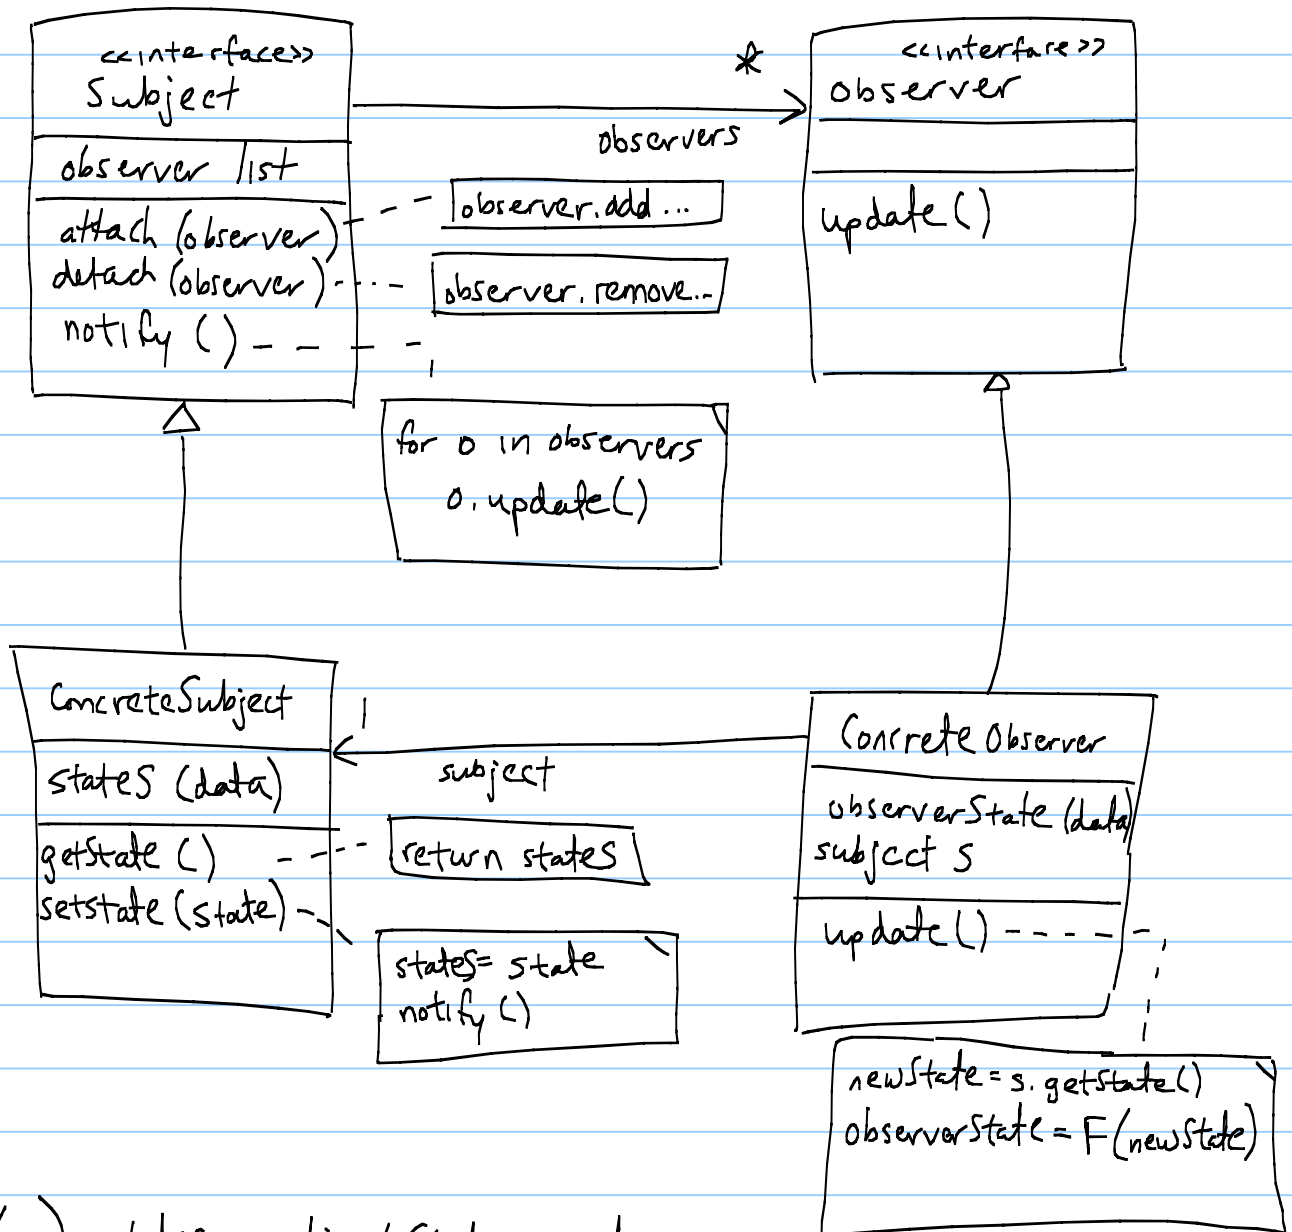 <<interface>>
Subject
observer list
attach (observer)
detach (observer)
notify ()
*
observers
observer.add ...
observer.remove...
for o in observers
o.update()
<<interface>>
observer
update()
ConcreteSubject
states (data)
getState ()
setState (state)
1
subject
return states
states = state
notify ()
Concrete Observer
observerState (data)
subject s
update()
newState = s.getState()
observerState = F(newState)